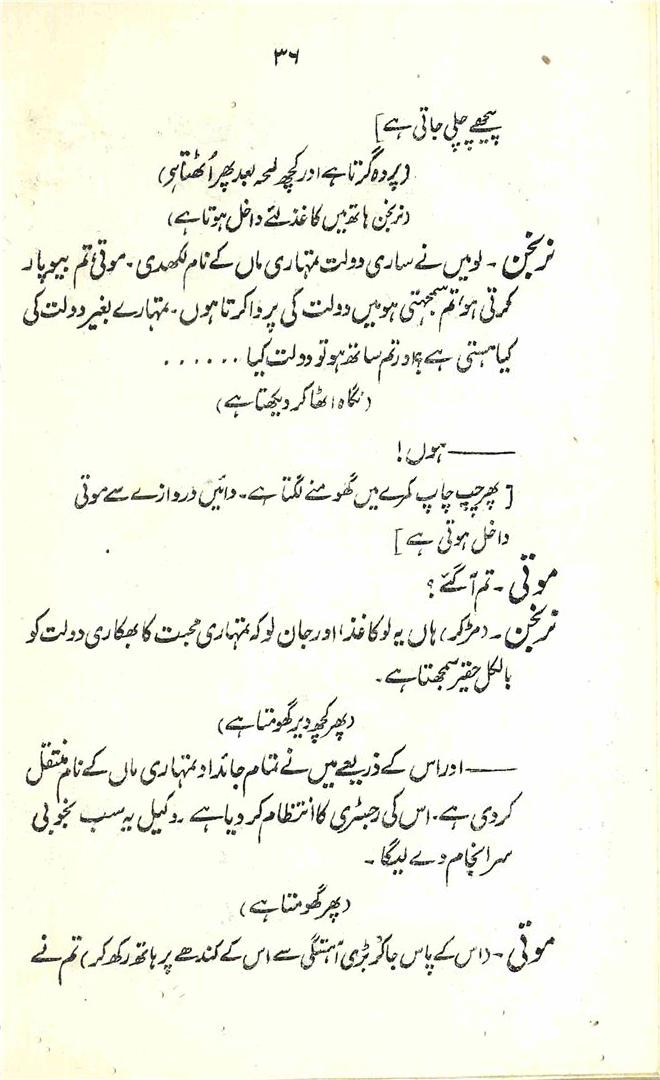 ۳۶
پیچھے چلی جاتی ہے]
(پردہ گرتا ہے اور کچھ لمحہ بعد پھر اُٹھتا ہی)
(نرنجن ہاتھ میں کاغذ لئے داخل ہوتا ہے)
نرنجن۔ لو میں نے ساری دولت تمہاری ماں کے نام لکھدی۔ موتی، تم بیوپار
کرتی ہو، تم سمجھتی ہو میں دولت کی پروا کرتا ہوں۔ تمہارے بغیر دولت کی
کیا ہستی ہے؟ اور تم ساتھ ہو تو دولت کیا......
(نگاہ اٹھا کر دیکھتا ہے)
——ہوں!
[پھر چپ چاپ کمرے میں گھومنے لگتا ہے۔ دائیں دروازے سے موتی
داخل ہوتی ہے]
موتی۔ تم آ گئے؟
نرنجن۔ (مڑ کر) ہاں یہ لو کاغذ، اور جان لو کہ تمہاری محبت کا بھکاری دولت کو
بالکل حقیر سمجھتا ہے۔
(پھر کچھ دیر گھومتا ہے)
——اور اس کے ذریعے میں نے تمام جائداد تمہاری ماں کے نام منتقل
کر دی ہے۔ اس کی رجسٹری کا انتظام کر دیا ہے۔ وکیل یہ سب بخوبی
سرانجام دے لیگا۔
(پھر گھومتا ہے)
موتی۔ (اس کے پاس جا کر بڑی آہستگی سے اس کے کندھے پر ہاتھ رکھ کر) تم نے